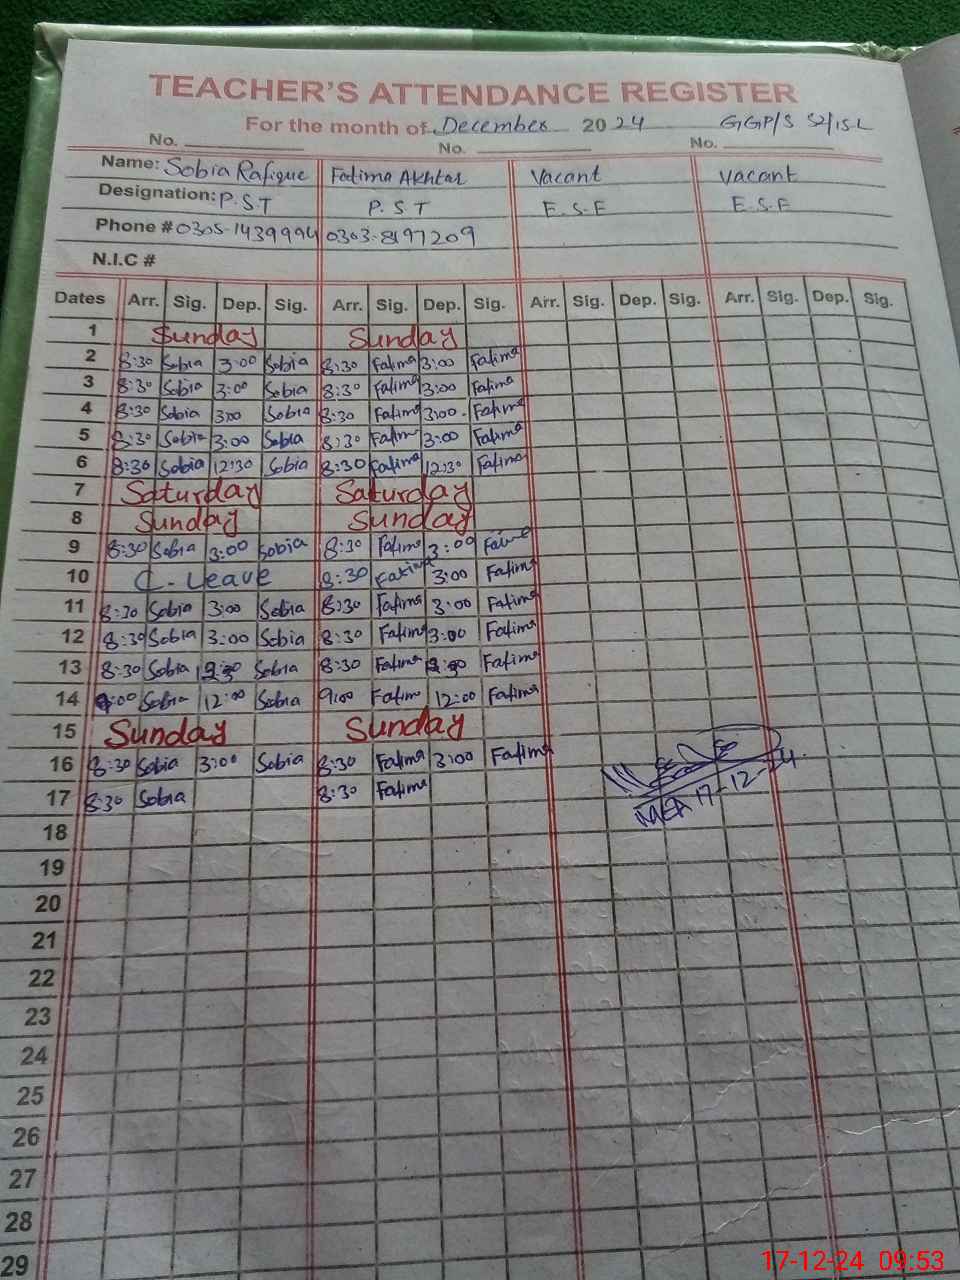 TEACHER'S ATTENDANCE REGISTER
For the month of December 2024 GGP/S 52/15-L
No. No. No.
Name: Sobia Rafique Fatima Akhtar Vacant Vacant
Designation: P.S.T P.S.T E.S.E E.S.E
Phone # 0305-1439994 0303-8197209
N.I.C #
Dates Arr. Sig. Dep. Sig. Arr. Sig. Dep. Sig. Arr. Sig. Dep. Sig. Arr. Sig. Dep. Sig.
1 Sunday Sunday
2 8:30 Sobia 3:00 Sobia 8:30 Fatima 3:00 Fatima
3 8:30 Sobia 3:00 Sobia 8:30 Fatima 3:00 Fatima
4 8:30 Sobia 3:00 Sobia 8:30 Fatima 3:00 Fatima
5 8:30 Sobia 3:00 Sobia 8:30 Fatima 3:00 Fatima
6 8:30 Sobia 12:30 Sobia 8:30 Fatima 12:30 Fatima
7 Saturday Saturday
8 Sunday Sunday
9 8:30 Sobia 3:00 Sobia 8:30 Fatima 3:00 Fatima
10 C. Leave 8:30 Fatima 3:00 Fatima
11 8:30 Sobia 3:00 Sobia 8:30 Fatima 3:00 Fatima
12 8:30 Sobia 3:00 Sobia 8:30 Fatima 3:00 Fatima
13 8:30 Sobia Sobia 8:30 Fatima Fatima
14 9:00 Sobia 12:00 Sobia 9:00 Fatima 12:00 Fatima
15 Sunday Sunday
16 8:30 Sobia 3:00 Sobia 8:30 Fatima 3:00 Fatima
17 8:30 Sobia 8:30 Fatima
MEA 17-12-24
18
19
20
21
22
23
24
25
26
27
28
29
17-12-24 09:53